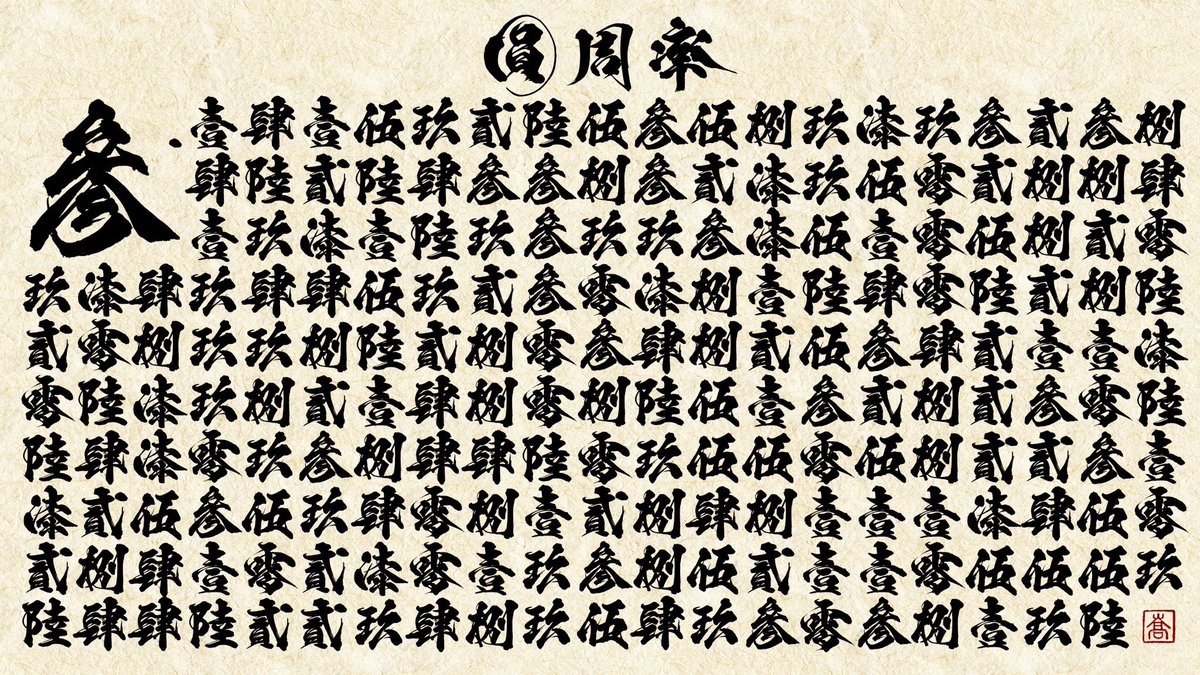 圓周率
參.壹肆壹伍玖貳陸伍參伍捌玖漆玖參貳參捌
肆陸貳陸肆參參捌參貳漆玖伍零貳捌捌肆
壹玖漆壹陸玖參玖玖參漆伍壹零伍捌貳零
玖漆肆玖肆肆伍玖貳參零漆捌壹陸肆零陸貳捌陸
貳零捌玖玖捌陸貳捌零參肆捌貳伍參肆貳壹壹漆
零陸漆玖捌貳壹肆捌零捌陸伍壹參貳捌貳參零陸
陸肆漆零玖參捌肆肆陸零玖伍伍零伍捌貳貳參壹
漆貳伍參伍玖肆零捌壹貳捌肆捌壹壹壹漆肆伍零
貳捌肆壹零貳漆零壹玖參捌伍貳壹壹零伍伍伍玖
陸肆肆陸貳貳玖肆捌玖伍肆玖參零參捌壹玖陸